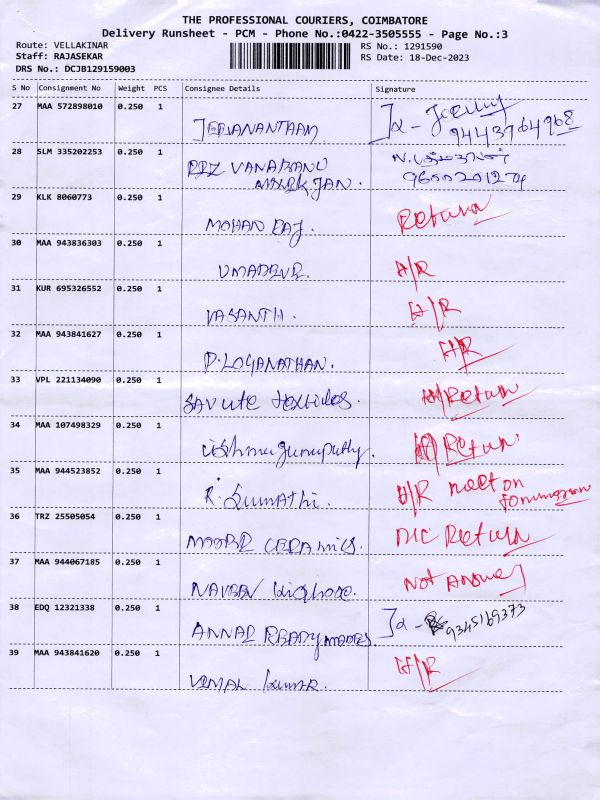 THE PROFESSIONAL COURIERS, COIMBATORE
Delivery Runsheet - PCM - Phone No.:0422-3505555 - Page No.:3
Route: VELLAKINAR
Staff: RAJASEKAR
DRS No.: DCJB129159003
RS No.: 1291590
RS Date: 18-Dec-2023
S No Consignment No Weight PCS Consignee Details Signature
27 MAA 572898010 0.250 1 JEEVANANTHAM
9443764968
28 SLM 335202253 0.250 1 VANABANU
JAN.
9600201274
29 KLK 8060773 0.250 1 MOHAN RAJ Return
30 MAA 943836303 0.250 1 UMADEVI. H/R
31 KUR 695326552 0.250 1 VASANTH. H/R
32 MAA 943841627 0.250 1 D.LOGANATHAN. H/R
33 VPL 221134090 0.250 1 SAVUTE textiles. H/Return
34 MAA 107498329 0.250 1 Return
35 MAA 944523852 0.250 1 R. Sumathi. H/R
36 TRZ 25505054 0.250 1 CERAMICS. Return
37 MAA 944067185 0.250 1 NAVEEN Kishore. NOT Answer
38 EDQ 12321338 0.250 1 ANNAI READYMADES. 9345169373
39 MAA 943841620 0.250 1 VIMAL Kumar. H/R